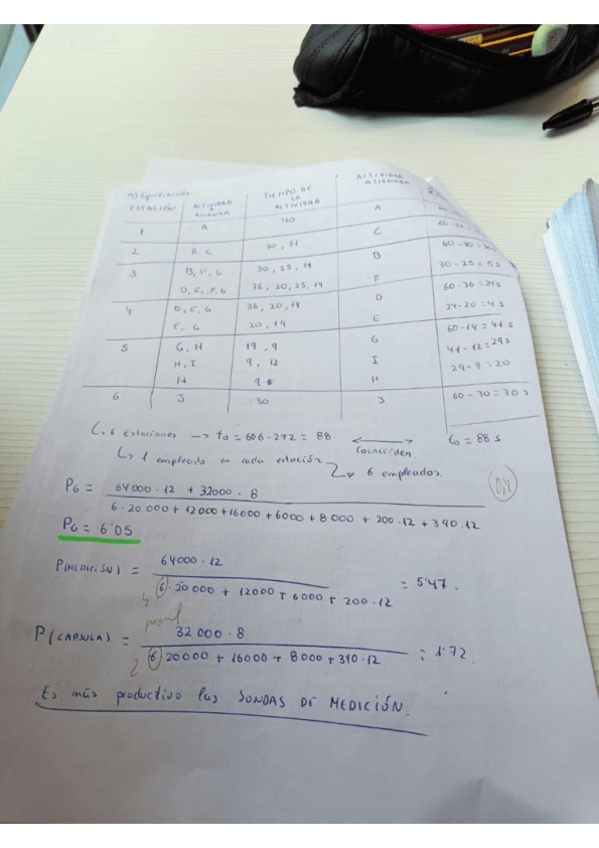 a) Equilibrado
ESTACIÓN ACTIVIDAD A ASIGNAR TIEMPO DE LA ACTIVIDAD ACTIVIDAD ASIGNADA
1 A 40 A
2 B, C 30, 51 C
3 B, F, G 30, 25, 14 B 60-30=
D, E, F, G 36, 20, 25, 14 F 30-25=5s
4 D, E, G 36, 20, 14 D 60-36=24s
E, G 20, 14 E 24-20=4s
5 G, H 14, 9 G 60-14=41s
H, I 9, 12 I 41-12=29s
H 9 H 29-9=20
6 J 30 J 60-30=30s
↳ 6 Estaciones → to = 606-272 = 88 ↔ Coinciden. to = 88 s
↳ 1 empleado en cada estación ↳ 6 empleados.
PG = 64000·12 + 32000·8
6·20000 + 12000 + 16000 + 6000 + 8000 + 200·12 + 390·12
PG = 6'05
P(MEDICIÓN) = 64000·12 = 5'47.
4 6·20000 + 12000 + 6000 + 200·12
P(CAPSULA) = 32000·8 = 1'72.
2 6·20000 + 16000 + 8000 + 390·12
Es más productivo las SONDAS DE MEDICIÓN.